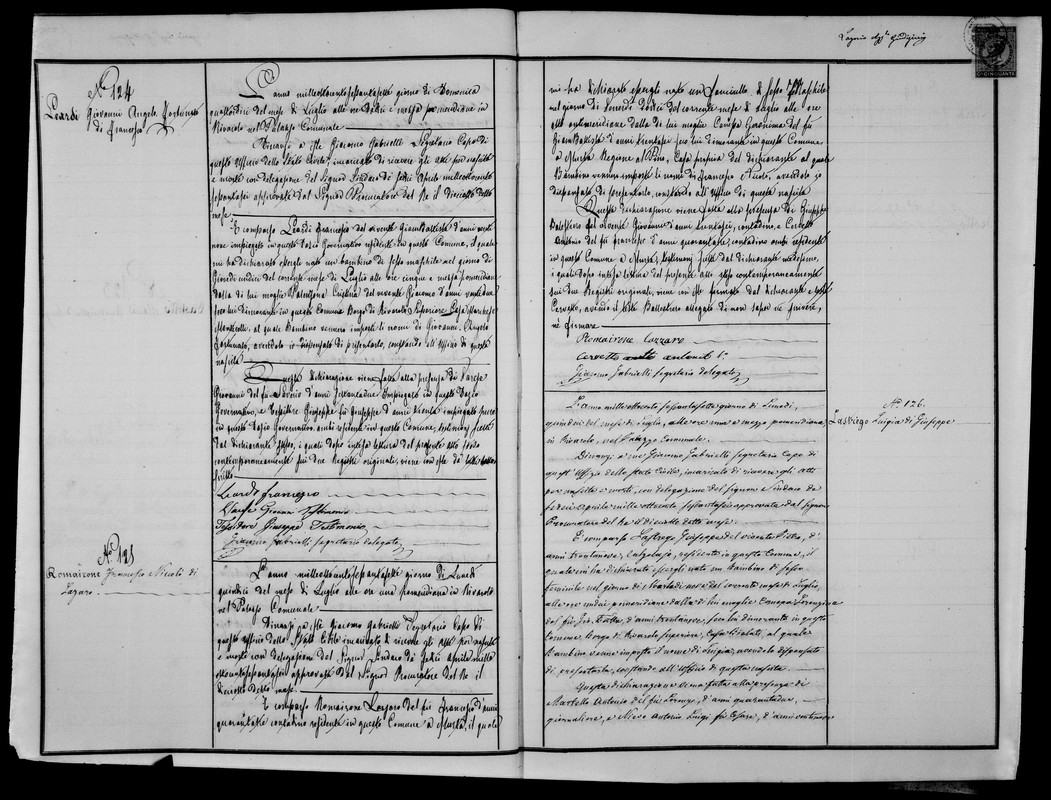 N° 124
Leardi Giovanni Angelo Fortunato
di Francesco
L'anno milleottocentosessantasette giorno di Domenica
quattordici del mese di Luglio alle ore dodici e mezza pomeridiane in
Rivarolo nel Palazzo Comunale
Dinanzi a me Giacomo Gabrielli Segretario Capo di
questo Ufficio dello Stato Civile, incaricato di ricevere gli atti per nascite
e morti con delegazione del Signor Sindaco di sedici Aprile milleottocento
sessantasei approvata dal Signor Procuratore del Re il diecisette detto
mese
È comparso Leardi Francesco del vivente Giambattista d'anni venti
nove impiegato in questo Dazio Governativo residente in questo Comune, il quale
mi ha dichiarato essergli nato un bambino di sesso maschile nel giorno di
Giovedì undici del corrente mese di Luglio alle ore cinque e mezza pomeridiane
dalla di lui moglie Cristina del vivente Giacomo d'anni
seco lui dimorante in questo Comune Borgo di Rivarolo Superiore Casa Marchese
al quale Bambino vennero imposti i nomi di Giovanni Angelo
Fortunato, avendolo io dispensato di presentarlo, constando all'Ufficio di questa
nascita
Questa dichiarazione viene fatta alla presenza di Varese
Giovanni del fu d'anni sessantadue impiegato in questo Dazio
Governativo, e Tessitore Giuseppe fu Giuseppe d'anni trenta impiegato pure
in questo Dazio Governativo ambi residenti in questo Comune, testimoni
dal dichiarante stesso, i quali dopo intesa lettura del presente atto steso
contemporaneamente sui due Registri originali, viene con me da tutti
Leardi Francesco
Varese Giovanni Testimonio
Tessitore Giuseppe Testimonio
Giacomo Gabrielli segretario delegato
N° 125
Romairone Francesco Nicolò di
Lazaro
L'anno milleottocentosessantasette giorno di Lunedì
quindici del mese di Luglio alle ore una pomeridiana in Rivarolo
nel Palazzo Comunale
Dinanzi a me Giacomo Gabrielli Segretario Capo di
questo Ufficio dello Stato Civile incaricato di ricevere gli atti per nascite
e morti con delegazione del Signor Sindaco di sedici Aprile mille
ottocentosessantasei approvata dal Signor Procuratore del Re il
diecisette detto mese
È comparso Romairone Lazzaro del fu Francesco d'anni
quarantatre contadino residente in questo Comune a Murta, il quale
mi ha dichiarato essergli nato un fanciullo di sesso Maschile
nel giorno di Venerdì dodici del corrente mese di Luglio alle ore
otto antimeridiane dalla di lui moglie Geronima del fu
Giambattista d'anni trentasei seco lui dimorante in questo Comune
a Murta Regione al Pino, Casa propria del dichiarante al quale
Bambino vennero imposti i nomi di Francesco e Nicolò, avendolo io
dispensato di presentarlo, constando all'Ufficio di questa nascita
Questa dichiarazione viene fatta alla presenza di Giuseppe
Balestrino del vivente Giovanni d'anni trentasei, contadino, e Cervetto
Antonio del fu Francesco d'anni quarantasei, contadino ambi residenti
in questo Comune a Murta, testimoni scelti dal dichiarante medesimo,
i quali dopo intesa lettura del presente atto steso contemporaneamente
sui due Registri originali, viene con me firmato dal dichiarante e teste
Cervetto, avendo il teste Balestrino allegato di non saper nè scrivere,
nè firmare
Romairone Lazzaro
Cervetto antonio t.
Giacomo Gabrielli segretario delegato
N° 126.
Lastrego Luigia di Giuseppe
L'anno mille ottocento sessantasette giorno di Lunedì,
quindici del mese di Luglio, alle ore una e mezzo pomeridiana,
in Rivarolo, nel Palazzo Comunale.
Dinanzi a me Giacomo Gabrielli segretario Capo di
quest'Uffizio dello stato Civile, incaricato di ricevere gli atti
per nascite e morti, con delegazione del signor Sindaco de
sedici aprile mille ottocento sessantasei approvata dal signor
Procuratore del Re il diecisette detto mese.
È comparso Lastrego Giuseppe del vivente Pietro, d'
anni trentanove, Calzolajo, residente in questo Comune, il
quale mi ha dichiarato essergli nato un Bambino di sesso
femminile nel giorno di Martedì nove del corrente mese di Luglio,
alle ore undici pomeridiane dalla di lui moglie Canepa Lorenzina
del fu Gio. Batta, d'anni trentanove, seco lui dimorante in questo
Comune Borgo di Rivarolo superiore, al quale
Bambino venne imposto il nome di Luigia, avendolo dispensato
di presentarlo, constando all'Uffizio di questa nascita.
Questa dichiarazione viene fatta alla presenza di
Martello Antonio del fu Lorenzo, d'anni quarantadue,
giornaliere, e Nicco Antonio Luigi fu Cesare, d'anni ventinove
CINQUANTA